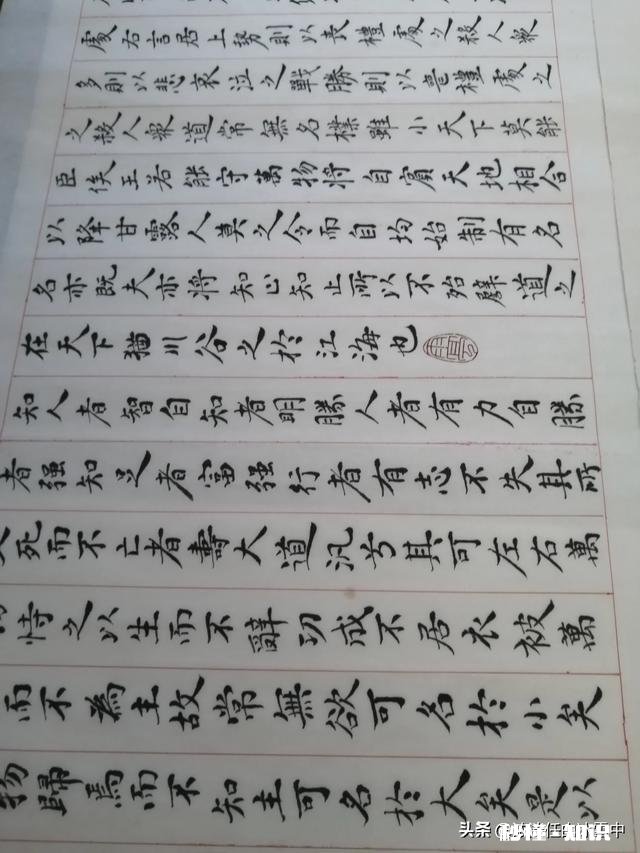 處右言居上勢則以喪禮處之殺人衆
多則以悲哀泣之戰勝則以喪禮處之
之殺人衆道常無名樸雖小天下莫能
臣侯王若能守萬物將自賓天地相合
以降甘露人莫之令而自均始制有名
名亦既夫亦將知止知止所以不殆譬道之
在天下猶川谷之於江海也
知人者智自知者明勝人者有力自勝
者强知足者富强行者有志不失其所
死而不亡者壽大道汎兮其可左右萬
恃之以生而不辭功成不居衣被萬
而不為主故常無欲可名於小矣
物歸焉而不知主可名於大矣是以
头条